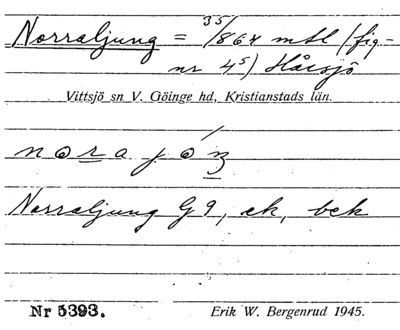 Norraljung = 35/864 mtl (fig-
nr 45) Hårsjö
Vittsjö sn V. Göinge hd, Kristianstads län.
Norraljung G 9, ek, bek
Nr 5393.
Erik W. Bergenrud 1945.